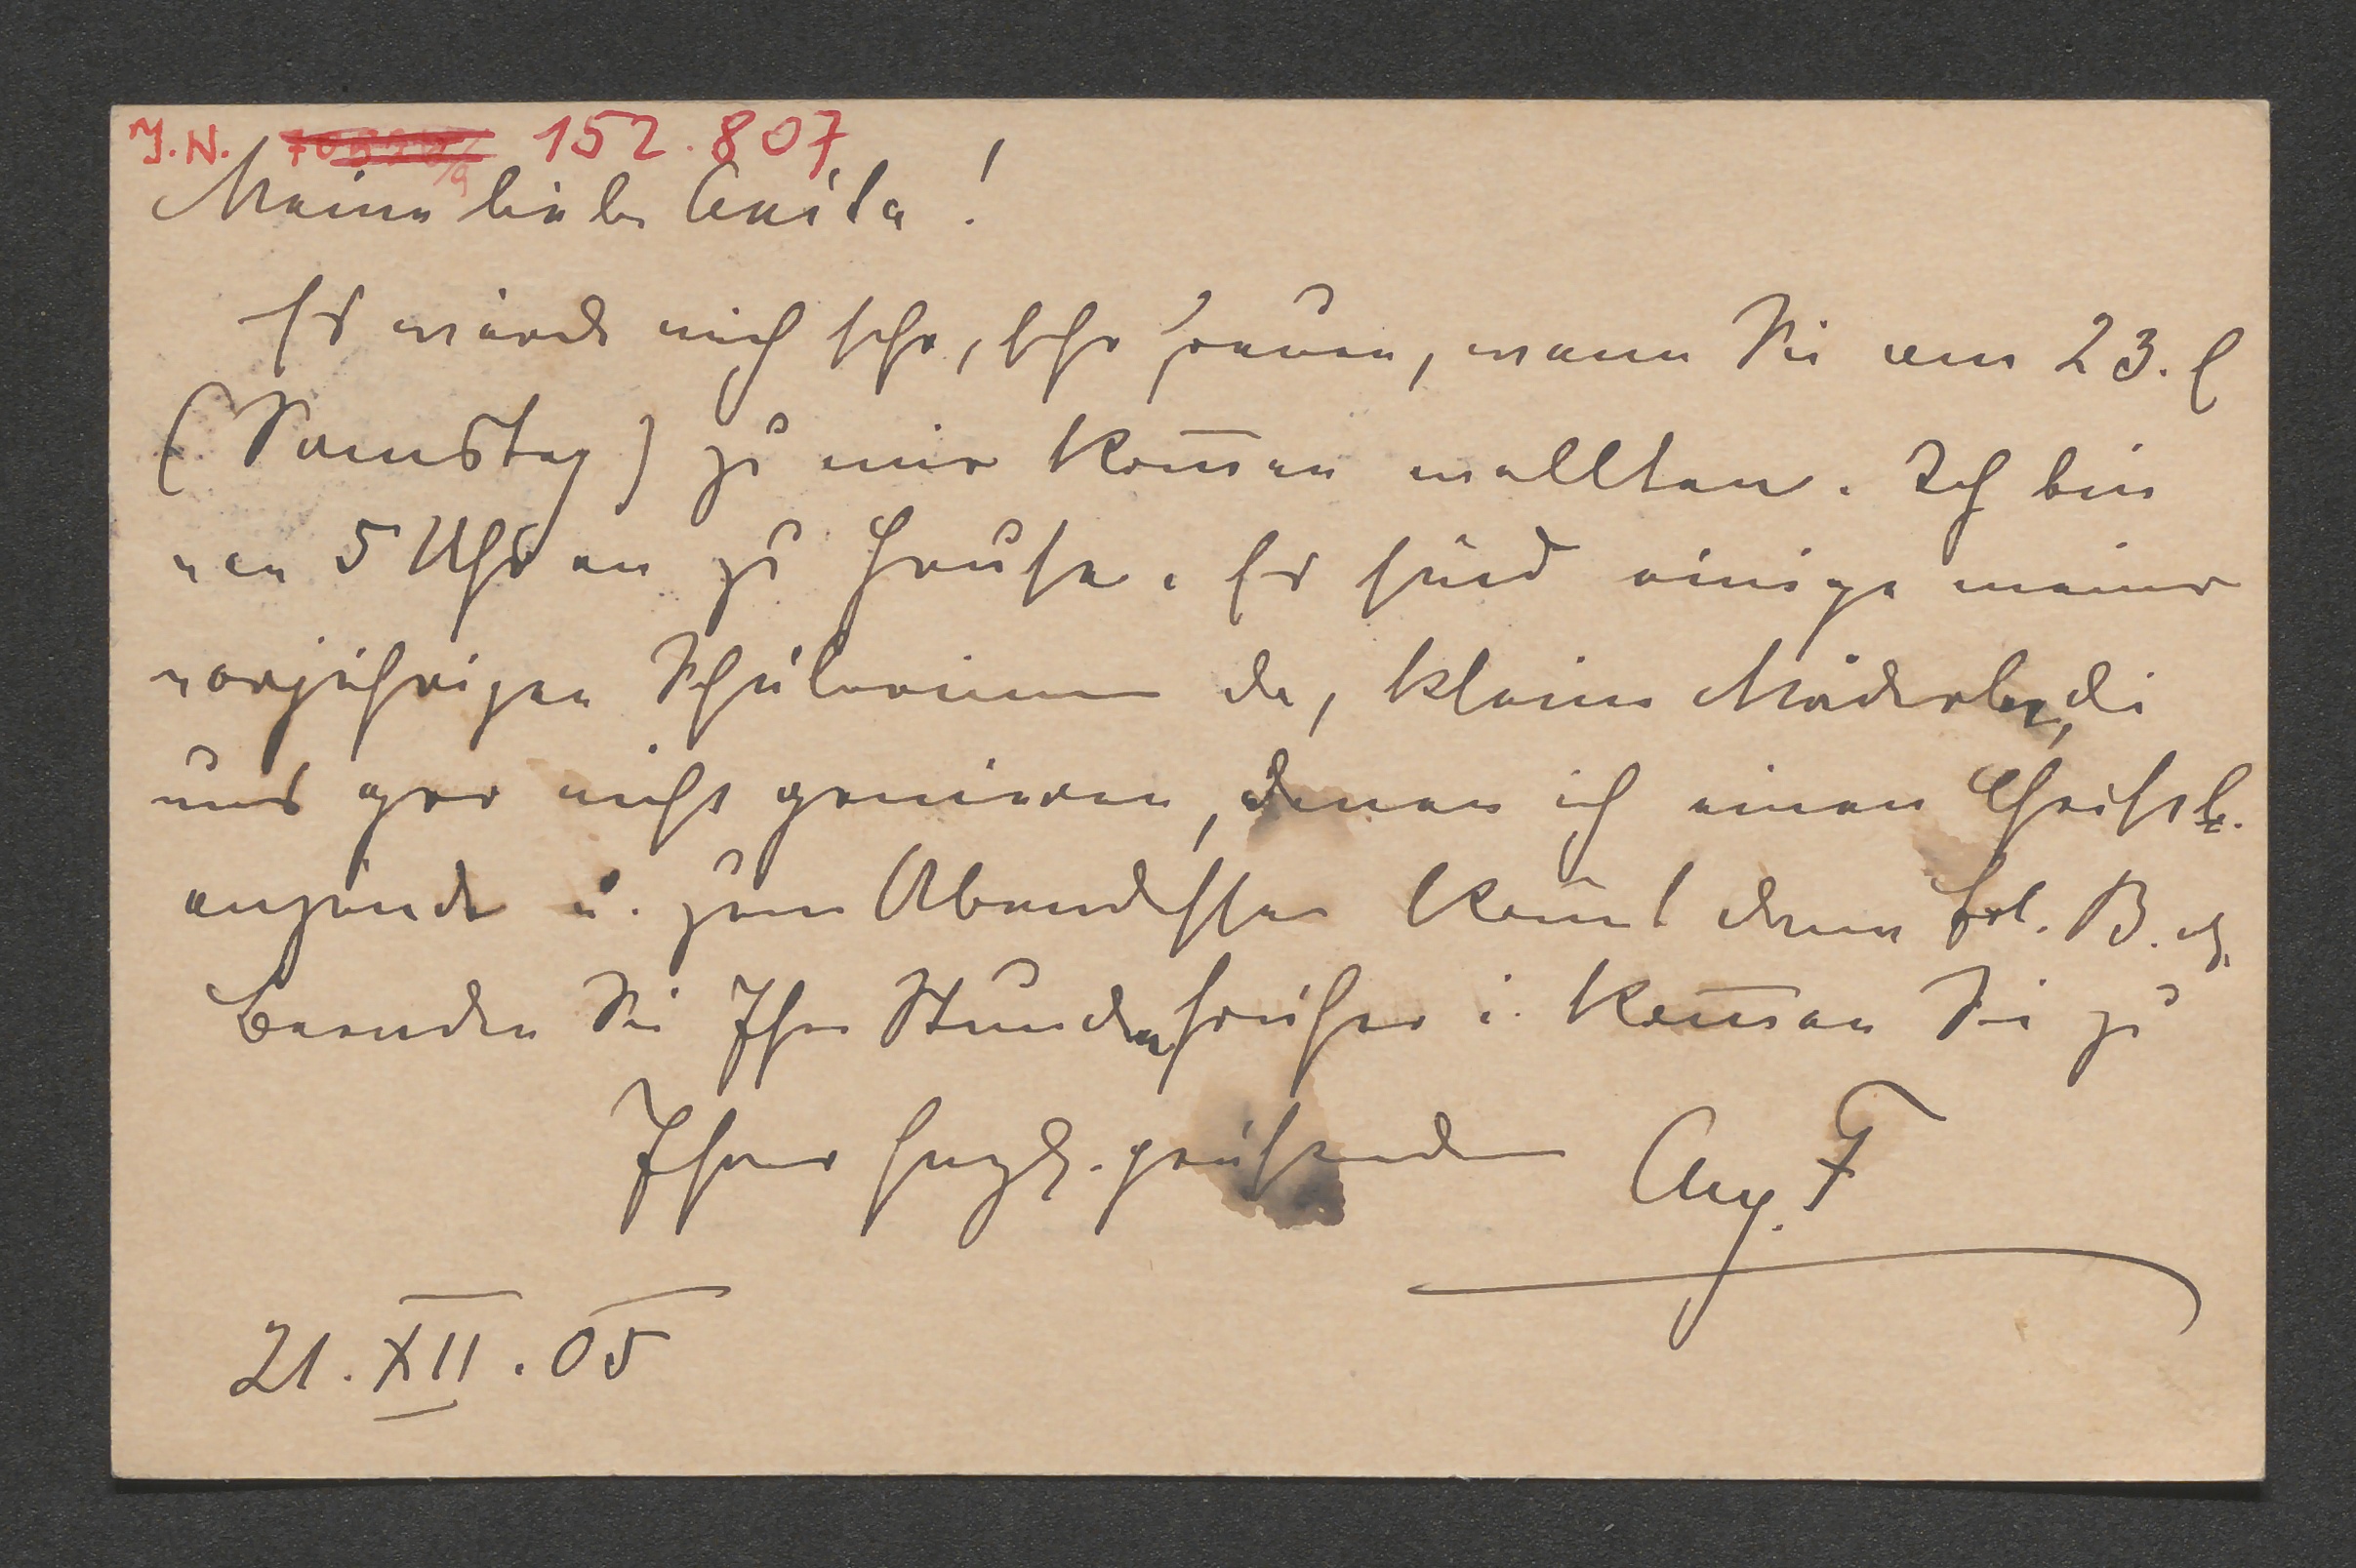 J.N. 152.807
Meine liebe Anita!
Es würde mich sehr, sehr freuen, wenn Sie am 23. l
(Samstag) zu mir kom̄en wollten. Ich bin
von 5 Uhr an zu Hause. Es sind einige meiner
vorjährigen Schülerinnen da, kleine Mäderln, die
uns gar nicht genieren, denen ich einen Christb.
anzünde u. zum Abendessen kom̄t dann Frl. B. d.
Beenden Sie Ihre Stunden früher u. kom̄en Sie zu
Ihrer herzl. grüßenden Aug. F
21. XII. 05